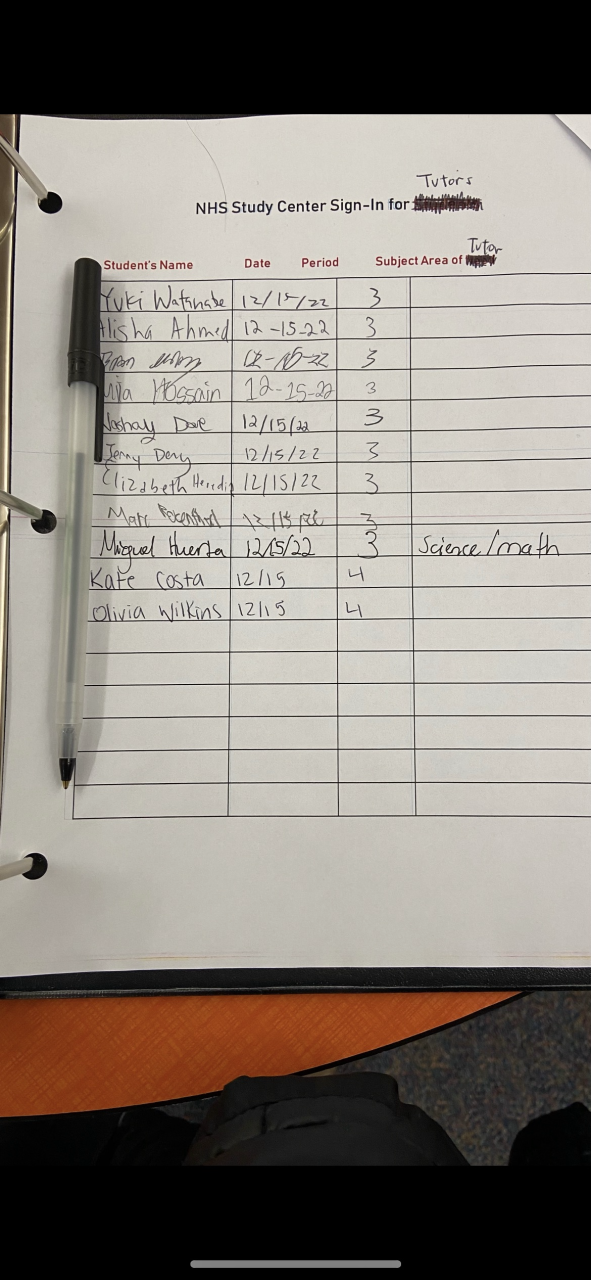 Tutors
NHS Study Center Sign-In for
Tutor
Student's Name Date Period Subject Area of
Yuki Watanabe 12/15/22 3
Alisha Ahmed 12-15-22 3
12-15-22 3
Hossain 12-15-22 3
Dave 12/15/22 3
Jenny 12/15/22 3
Elizabeth Heredia 12/15/22 3
Marc 12/15/22 3
Miguel Huerta 12/15/22 3 Science/math
Kate Costa 12/15 4
Olivia Wilkins 12/15 4